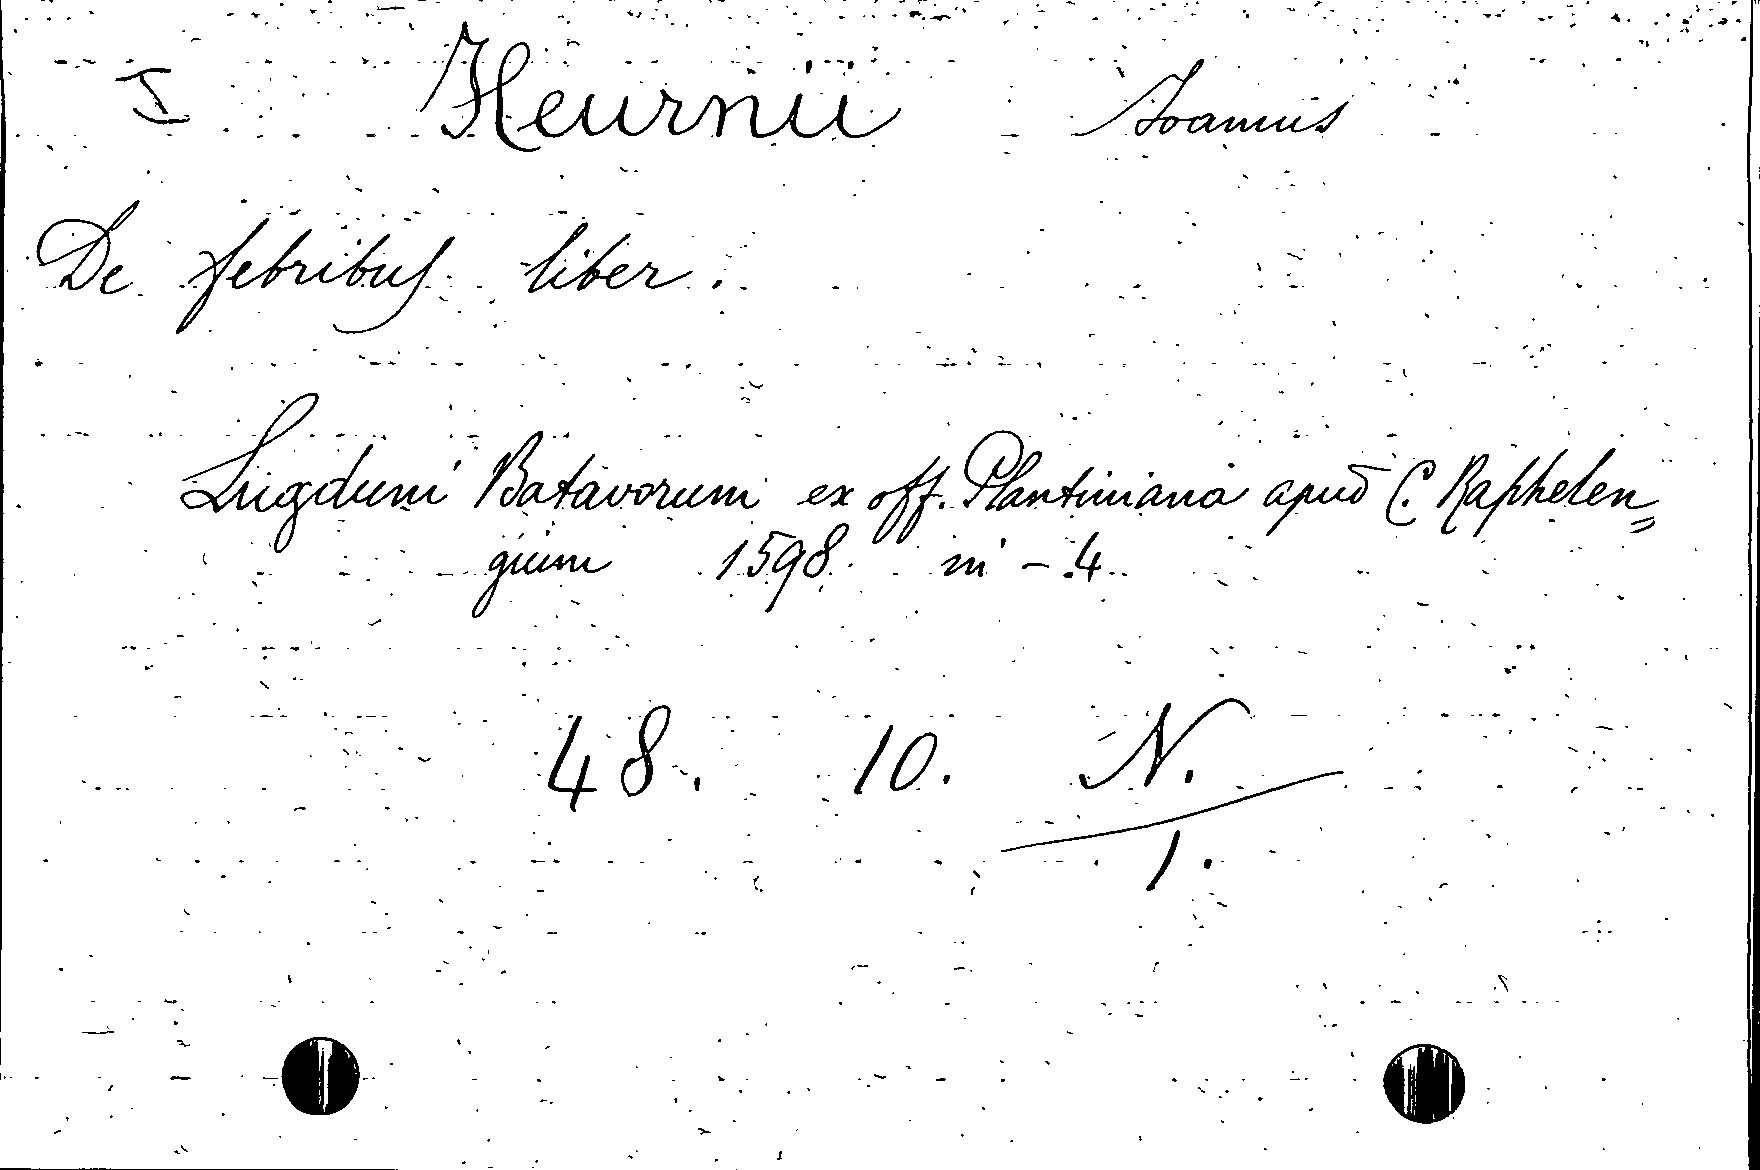 I Heurnii Ioannis
De febribus liber.
Lugduni Batavorum ex off. Plantiniana apud C. Raphelen=
gium 1598 in - 4
48. 10. N.
1.